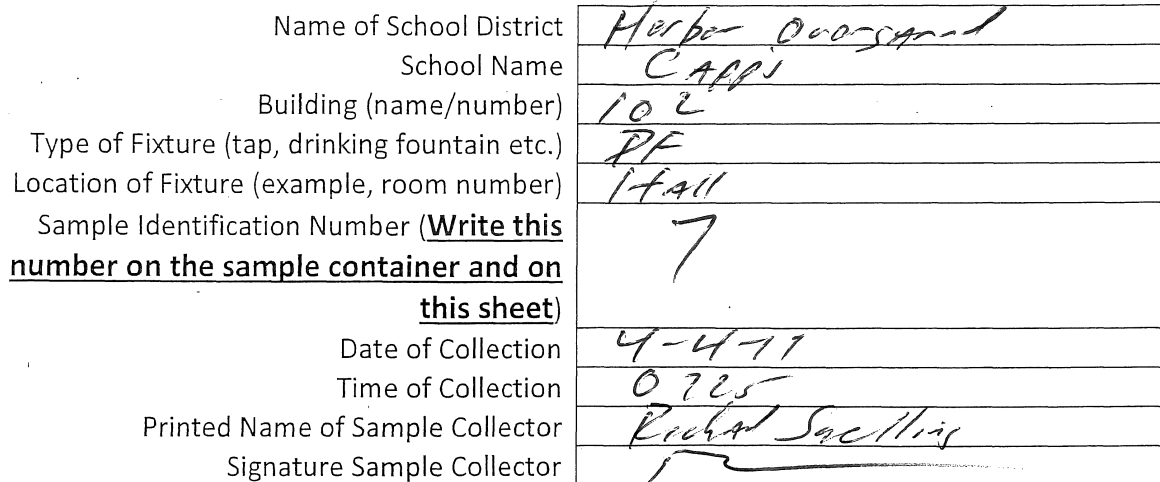 Name of School District
School Name CAPPS
Building (name/number) 102
Type of Fixture (tap, drinking fountain etc.) DF
Location of Fixture (example, room number) Hall
Sample Identification Number (Write this 7
number on the sample container and on
this sheet)
Date of Collection
Time of Collection
Printed Name of Sample Collector Snelling
Signature Sample Collector